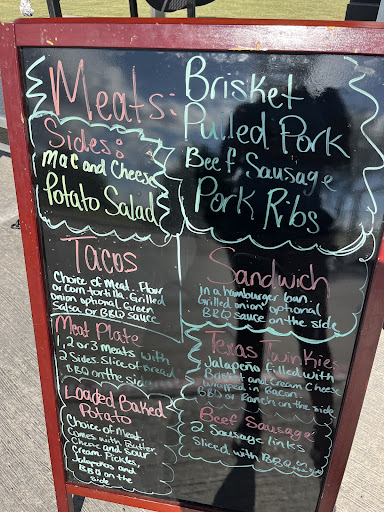 Meats:
Brisket
Pulled Pork
Beef Sausage
Pork Ribs
Sides:
Mac and Cheese
Potato Salad
Tacos
Choice of Meat. Flour
or corn tortilla. Grilled
onion optional. Green
Salsa or BBQ Sauce
Sandwich
in a hamburger bun.
Grilled onion optional
BBQ sauce on the side
Meat Plate
1, 2 or 3 meats with
2 Sides. Slice of bread
BBQ on the side
Texas Twinkies
Jalapeño filled with
Brisket and Cream Cheese
wrapped in Bacon.
BBQ or Ranch on the side
Loaded Baked
Potato
Choice of Meat.
Comes with Butter.
Cheese and Sour
Cream. Pickles,
Jalapeños and
BBQ on the
side
Beef Sausage
2 Sausage links
Sliced with BBQ